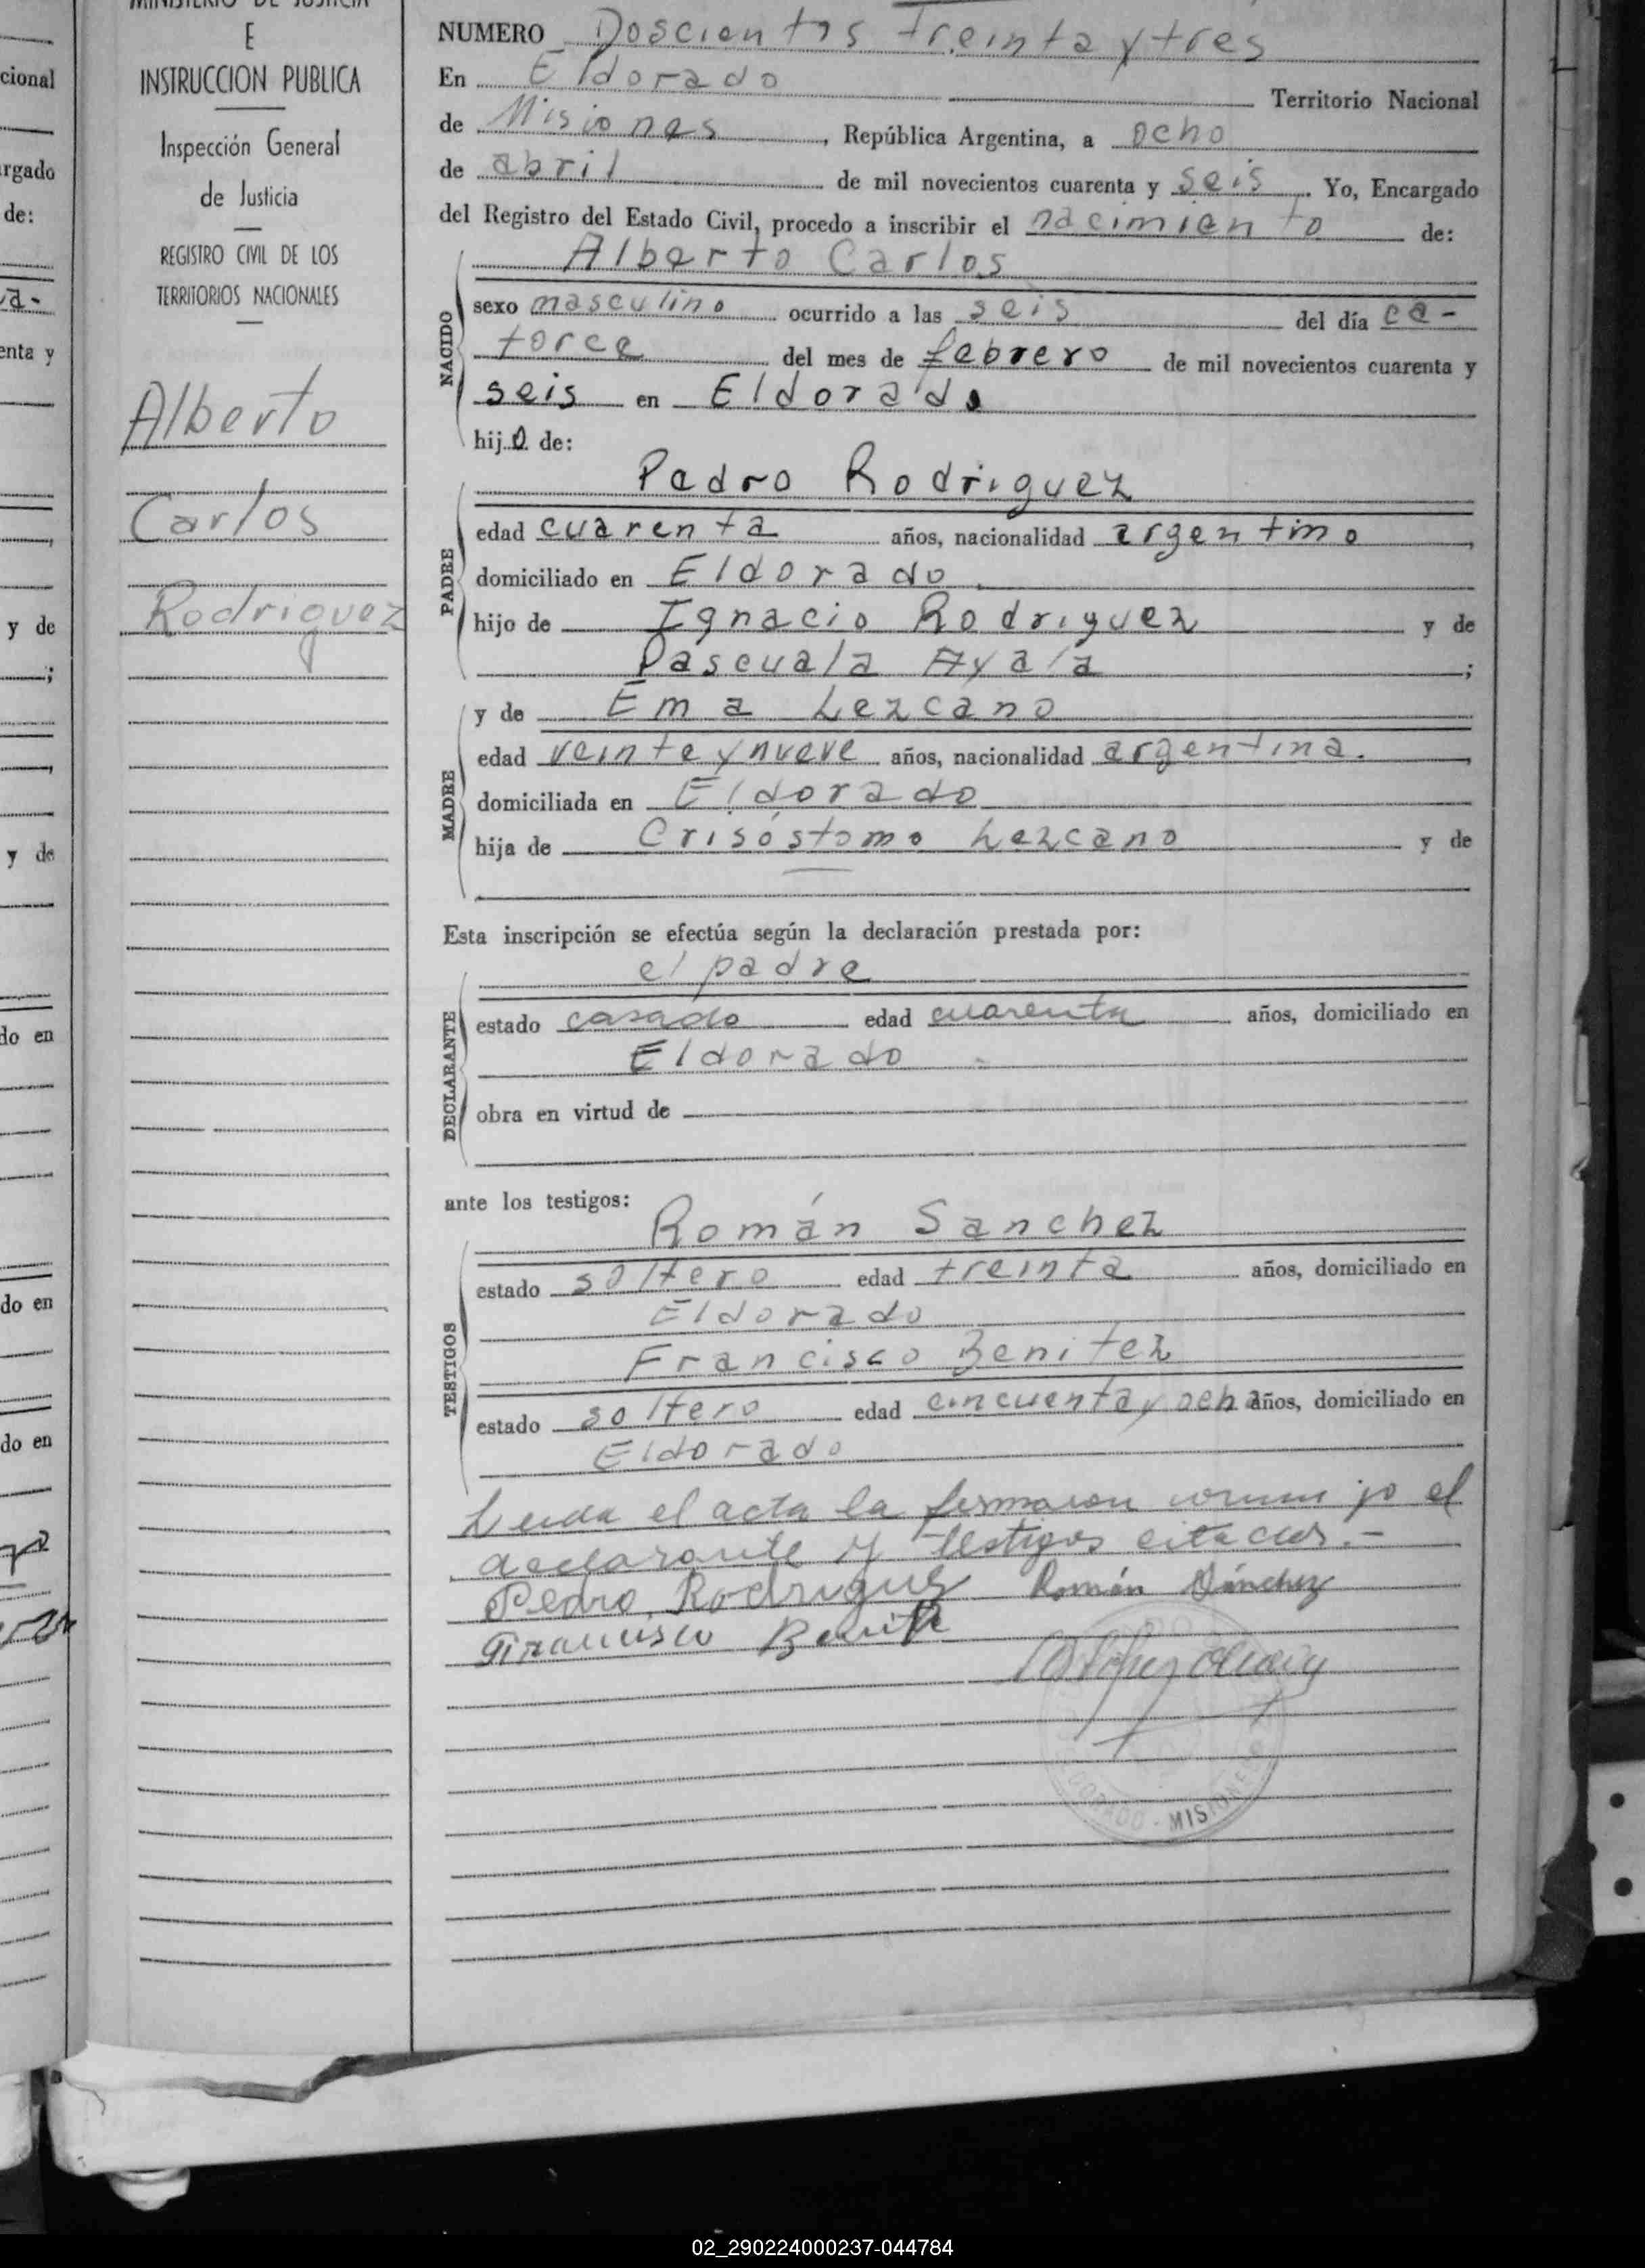 MINISTERIO DE JUSTICIA
E
INSTRUCCION PUBLICA
Inspección General
de Justicia
REGISTRO CIVIL DE LOS
TERRITORIOS NACIONALES
Alberto
Carlos
Rodriguez
cional
rgado
de:
va-
enta y
y de
;
y de
do en
do en
do en
NUMERO Doscientos treinta y tres
En Eldorado Territorio Nacional
de Misiones, República Argentina, a ocho
de abril de mil novecientos cuarenta y seis. Yo, Encargado
del Registro del Estado Civil, procedo a inscribir el nacimiento de:
Alberto Carlos
NACIDO
sexo masculino ocurrido a las seis del día ca-
torce del mes de febrero de mil novecientos cuarenta y
seis en Eldorado
hijo de:
Pedro Rodriguez
PADRE
edad cuarenta años, nacionalidad argentino,
domiciliado en Eldorado.
hijo de Ignacio Rodriguez y de
Pascuala Ayala;
y de Ema Lezcano
MADRE
edad veinte y nueve años, nacionalidad argentina.,
domiciliada en Eldorado
hija de Crisóstomo Lezcano y de
Esta inscripción se efectúa según la declaración prestada por:
el padre
DECLARANTE
estado casado edad cuarenta años, domiciliado en
Eldorado
obra en virtud de
ante los testigos:
Román Sanchez
TESTIGOS
estado soltero edad treinta años, domiciliado en
Eldorado
Francisco Benitez
estado soltero edad cincuenta y ocho años, domiciliado en
Eldorado
Leida el acta la firmaron conmigo el
declarante y testigos citados.-
Pedro Rodriguez Román Sánchez
Francisco Benitez
ELDORADO - MISIONES
02_290224000237-044784